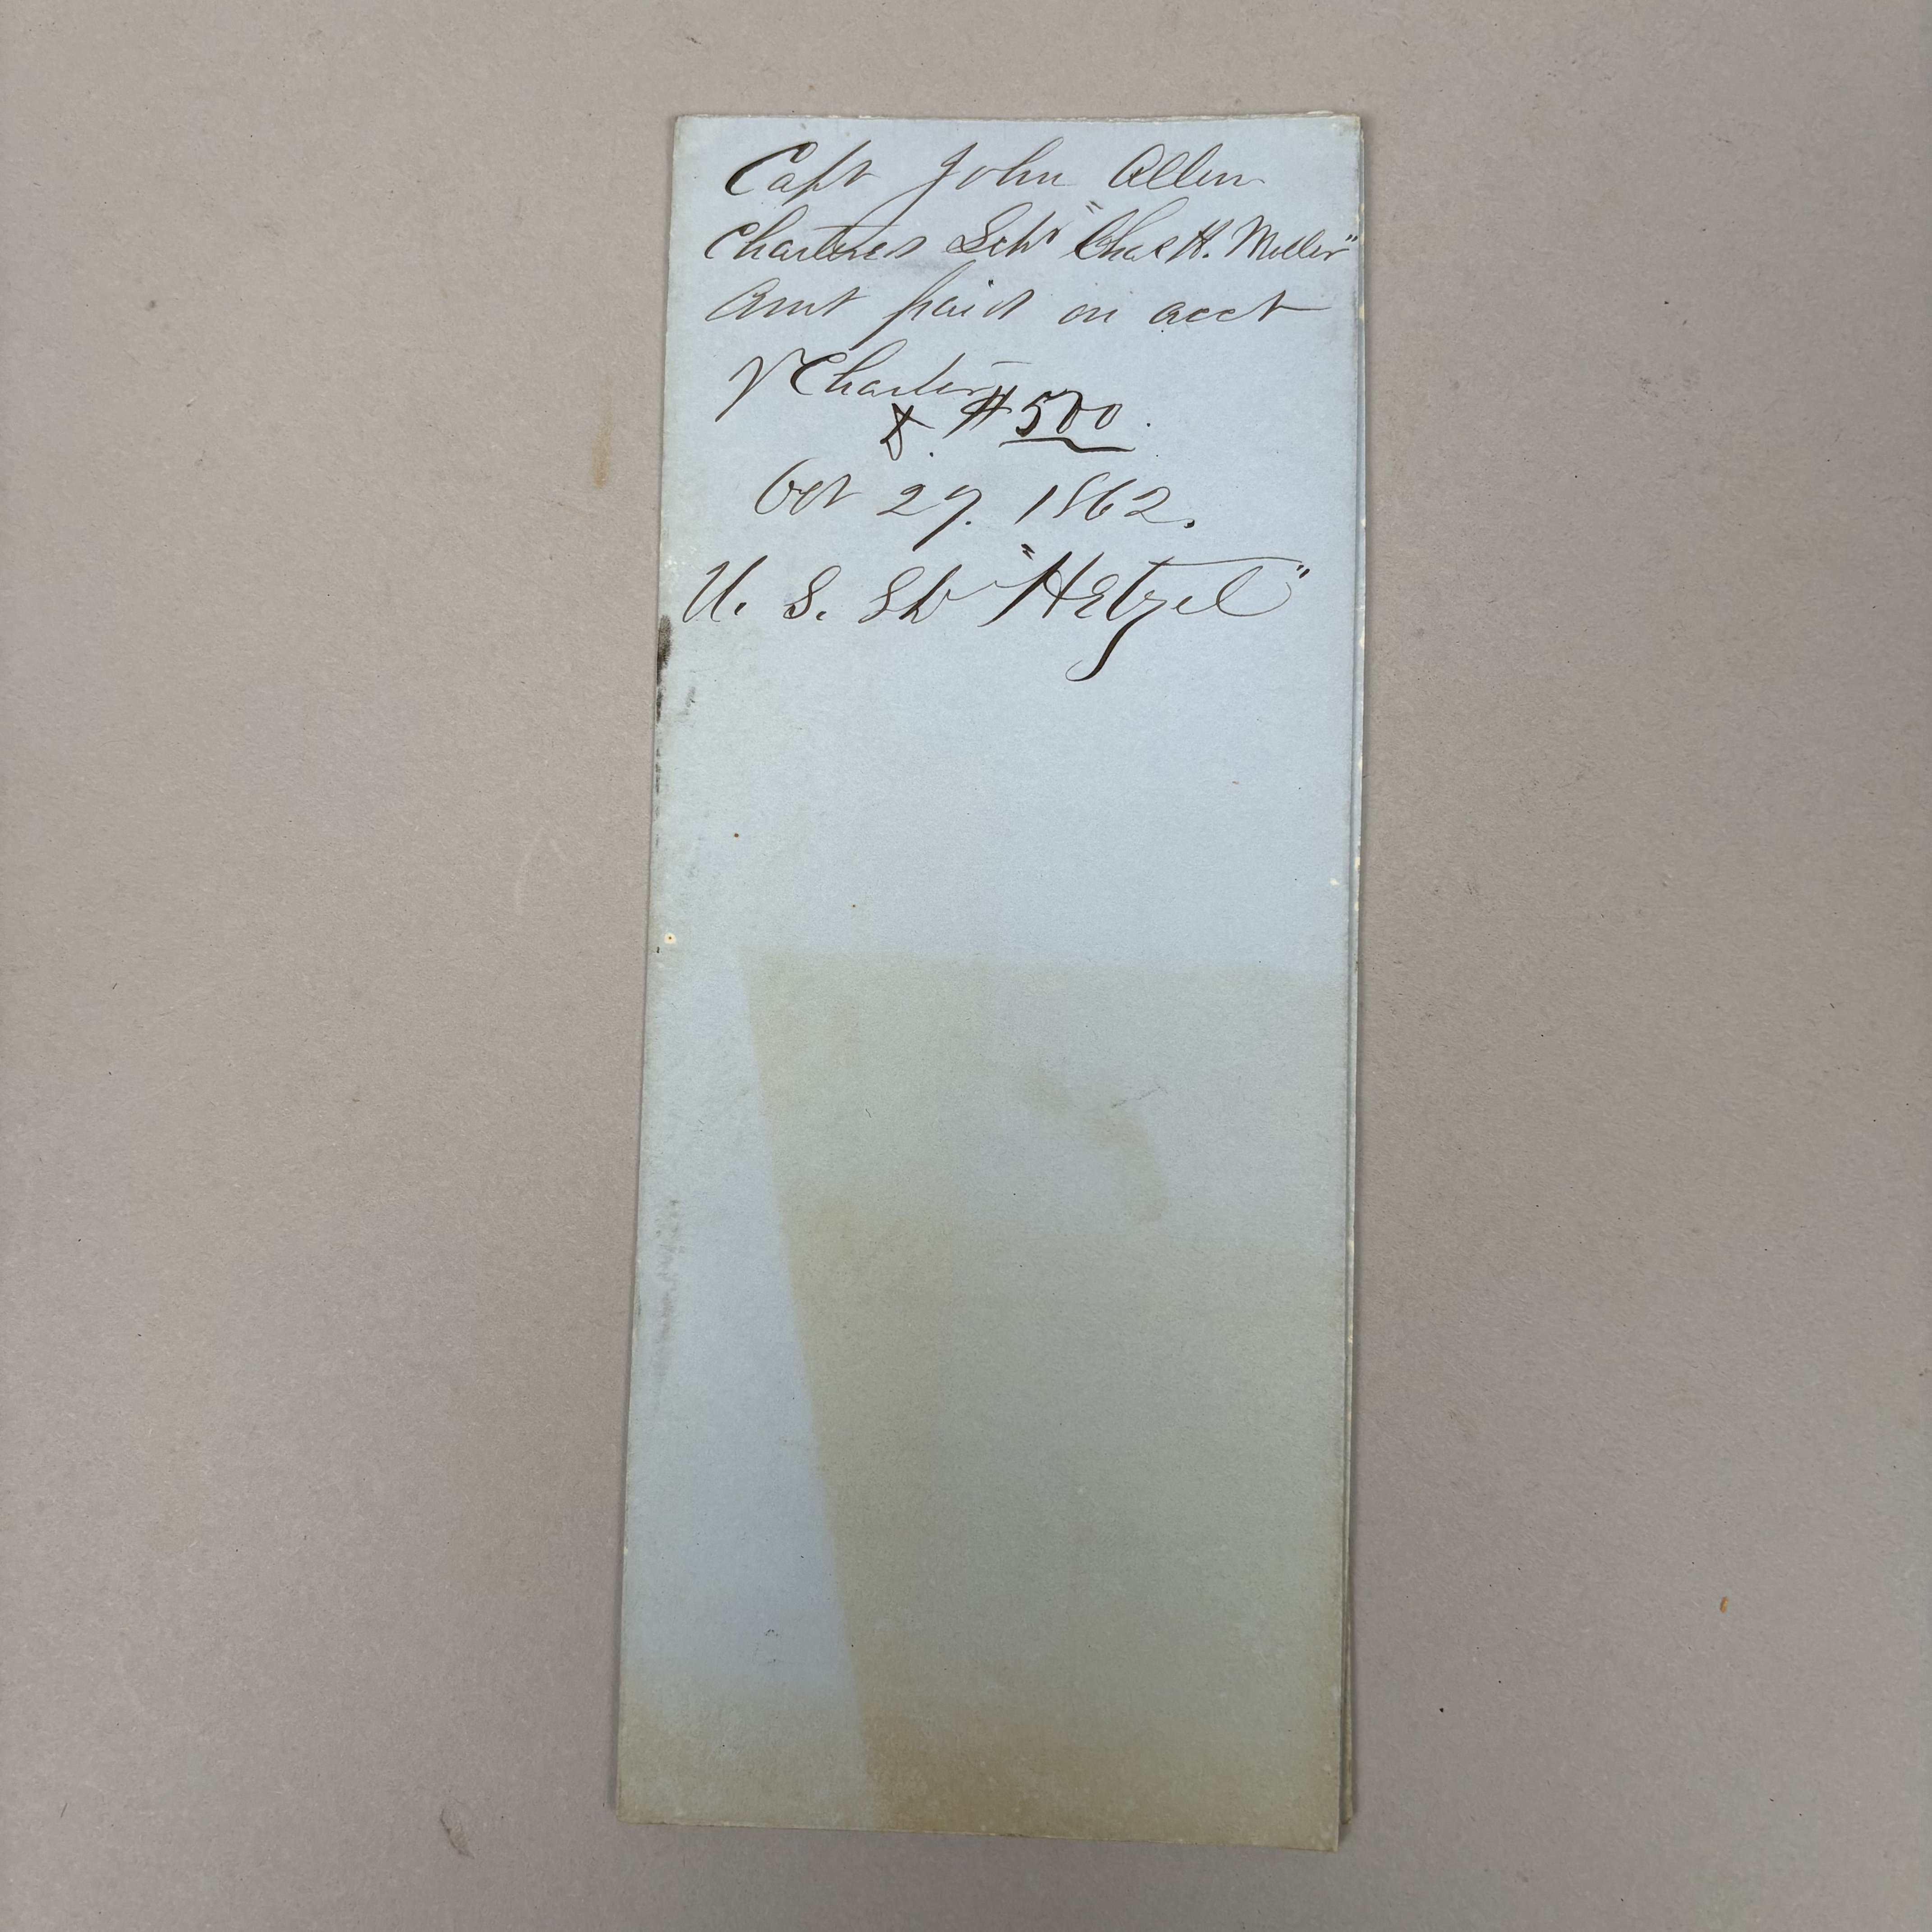 Capt John Allen
Charters Schr "Chas H. Moller"
Amt paid on acct
of Charter
$500.
Oct 27. 1862.
U. S. Str "Hetzel"